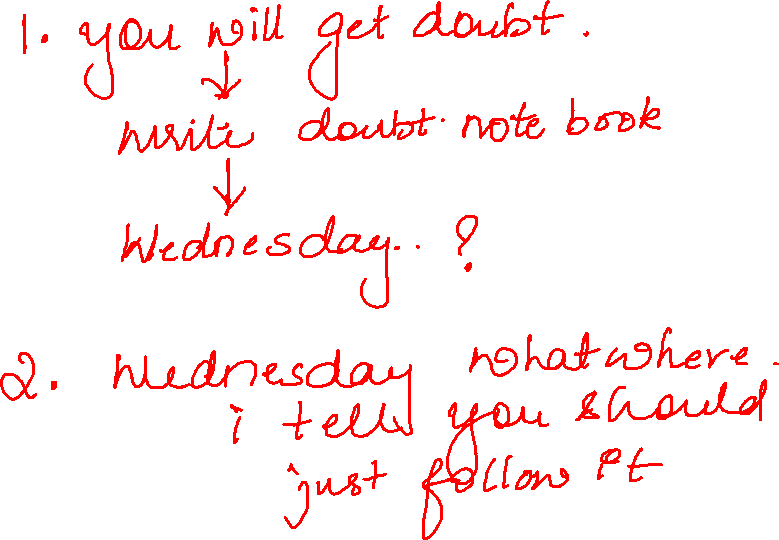 1. you will get doubt.
↓
write doubt. note book
↓
Wednesday.. ?
2. Wednesday whatwhere.
i tells you should
just follow it